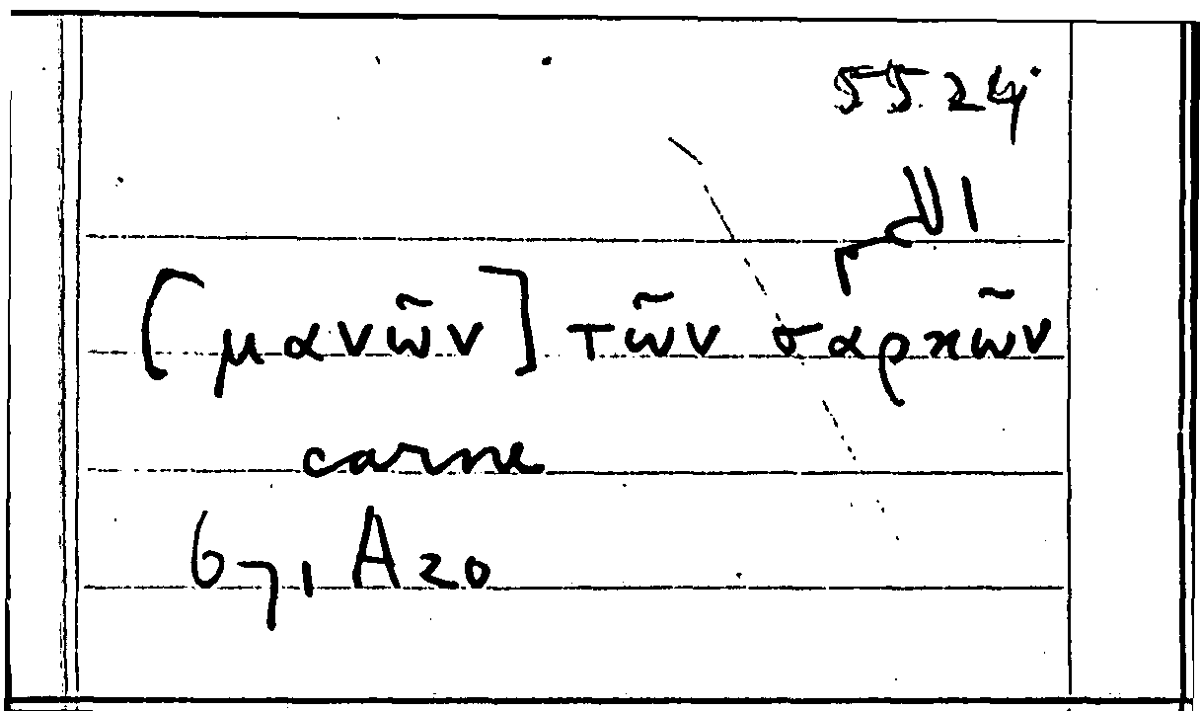 5524
اللحم
[μανῶν] τῶν σαρκῶν
carne
67,1 A20